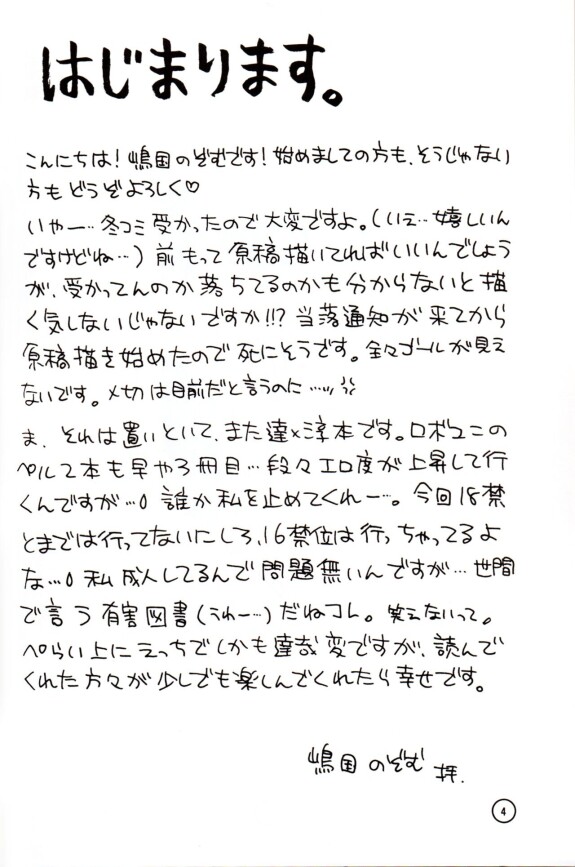 はじまります。
こんにちは!嶋国のぞむです!始めましての方も、そうじゃない
方もどうぞよろしく♡
いやー…冬コミ受かったので大変ですよ。(いえ…嬉しいん
ですけどね…)前もって原稿描いてればいいんでしょう
が、受かってんのか落ちてるのかも分からないと描
く気しないじゃないですか!!?当落通知が来てから
原稿描き始めたので死にそうです。全々ゴールが見え
ないです。〆切は目前だと言うのに…
ま、それは置いといて、また達×淳本です。ロボユニの
ペルソ本も早や3冊目…段々エロ度が上昇して行
くんですが…。誰か私を止めてくれー…。今回18禁
とまでは行ってないにしろ、16禁位は行っちゃってるよ
な…。私成人してるんで問題無いんですが…世間
で言う有害図書(うわー…)だねコレ。笑えないって。
ぺらい上にえっちでしかも達哉変ですが、読んで
くれた方々が少しでも楽しんでくれたら幸せです。
嶋国のぞむ 拝.
4